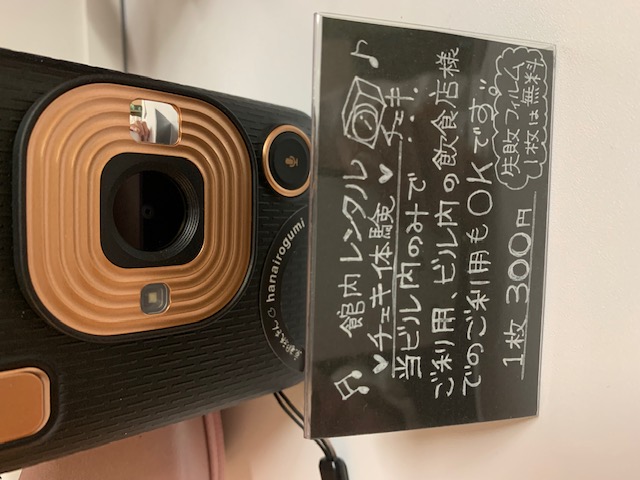 館内レンタル
チェキ体験
チェキ
当ビル内のみで
ご利用、ビル内の飲食店様
でのご利用もOKです。
1枚 300円
失敗フィルム
1枚は無料
hanairogumi